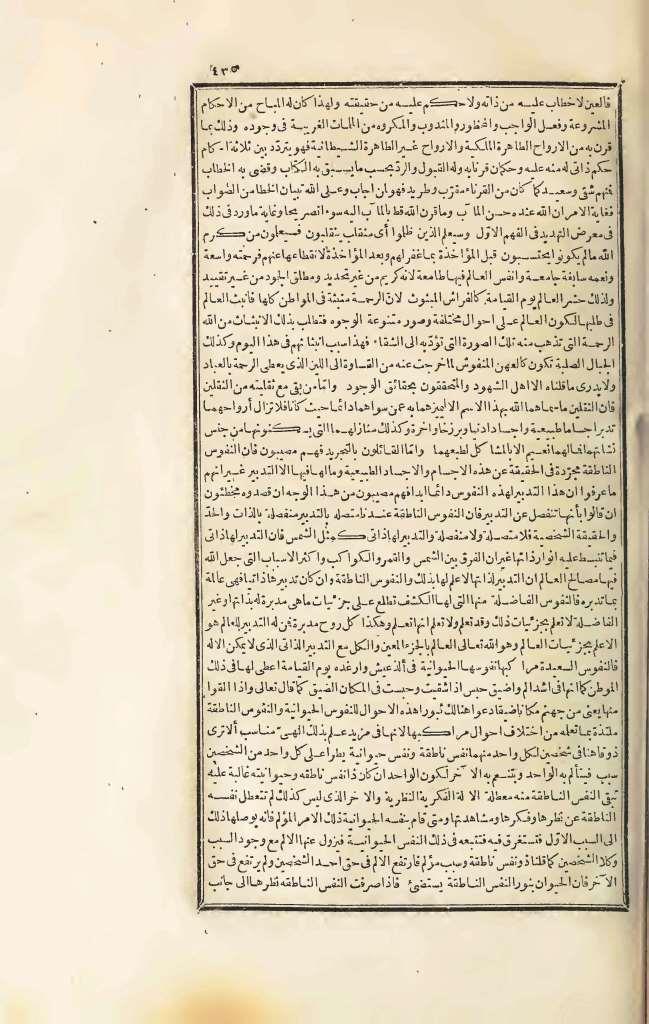 ٤٣٥
فالعين لا خطاب عليه من ذاته ولا حكم عليه من حقيقته ولهذا كان له المباح من الاحكام
المشروعة وفعل الواجب والمحظور والمندوب والمكروه من الملمات الغريبة فى وجوده وذلك بما
قرن به من الارواح الطاهرة الملكية والارواح غير الطاهرة الشيطانية فهو يتردد بين ثلاثة احكام
حكم ذاتى له منه عليه وحكمان قرنا به وله القبول والرد بحسب ما يسبق به الكتاب وقضى به الخطاب
فنهم شقى وسعيد كما كان من القرناء مقرّب وطريد فهو لمن اجاب وعلى الله تبيان الخطا من الصواب
فغاية الامر ان الله عنده حسن المآب وما قرن الله قط بالمآب اليه سوءا تصريحا وغاية ما ورد فى ذلك
فى معرض التهديد فى الفهم الاوّل وسيعلم الذين ظلموا أى منقلب ينقلبون فسيعلون من كرم
الله مالم يكونوا يحتسبون قبل المؤاخذة بما غفر لهم وبعد المؤاخذة لانقطاعها عنهم فرحمته واسعة
ونعمه سابغة جامعة وانفس العالم فيها طامعة لانه كريم من غير تحديد ومطلق الجود من غير تقييد
ولذلك حشر العالم يوم القيامة كالفراش المبثوث لانّ الرحمة منبثة فى المواطن كلها فانبث العالم
فى طلبها لكون العالم على احوال مختلفة وصور متنوعة الوجوه فتطلب بذلك الانبثاث من الله
الرحمة التى تذهب منه تلك الصورة التى تؤدّيه الى الشقاء فهذا سبب انبثاثهم فى هذا اليوم وكذلك
الجبال الصلبة تكون كالعهن المنفوش لما خرجت عنه من القساوة الى اللين الذى يعطى الرحمة بالعباد
ولا يدرى ما قلناه الا اهل الشهود والمتحققون بحقائق الوجود وامّا من بقى مع ثقليته من الثقلين
فان الثقلين ما سماهما الله بهذا الاسم الا ليميزهما به عن سواهما دائما حيث كانا فلا تزال أرواحهما
تدبر اجساما طبيعية واجسادا دنيا وبرزخا واخرة وكذلك منازلهما التى يسكنونها من جنس
نشاتهما فما لهما نعيم الا بالمشاكل لطبعهما وامّا القائلون بالتجريد فهم مصيبون فان النفوس
الناطقة مجرّدة فى الحقيقة عن هذه الاجسام والاجساد الطبيعية وما لها فيها الا التدبير غير انهم
ما عرفوا ان هذا التدبير لهذه النفوس دائما ابدا فهم مصيبون من هذا الوجه ان قصدوه مخطئون
ان قالوا بأنها تنفصل عن التدبير فان النفوس الناطقة عندنا متصلة بالتدبير منفصلة بالذات والحدّ
والحقيقة الشخصية فلا متصلة ولا منفصلة والتدبير لها ذاتى كمثل الشمس فان التدبير لها ذاتى
فيما تنبسط عليه انوار ذاتها غير ان الفرق بين الشمس والقمر والكواكب واكثر الاسباب التى جعل الله
فيها مصالح العالم ان التدبير لذاتها لا علم لها بذلك والنفوس الناطقة وان كان تدبيرها ذاتيا فهى عالمة
بما تدبره فالنفوس الفاضلة منها التى لها الكشف تطلع على جزئيات ما هى مدبرة له بذاتها وغير
الفاضلة لا تعلم بجزئيات ذلك وقد تعلم ولا تعلم انها تعلم وهكذا كل روح مدبرة فمن له التدبير للعالم هو
الاعلم بجزئيات العالم وهو الله تعالى العالم بالجزء المعين والكل مع التدبير الذاتى الذى لا يمكن الا له
فالنفوس السعيدة مراكبها نفوسها الحيوانية فى ألذ عيش وارغده يوم القيامة اعطى لها فى ذلك
الموطن كما انها فى اشد الم واضيق حبس اذا شقيت وحبست فى المكان الضيق كما قال تعالى واذا القوا
منها يعنى من جهنم مكانا ضيقا دعوا هنالك ثبورا هذه الاحوال للنفوس الحيوانية والنفوس الناطقة
ملتذة بما تعلمه من اختلاف احوال مراكبها لانها فى مزيد علم بذلك الهىّ مناسب ألا ترى
ذوقا هنا فى شخصين لكل واحد منهما نفس ناطقة ونفس حيوانية يطرا على كل واحد من الشخصين
سبب فيتألم به الواحد ويتنعم به الآخر لكون الواحد ان كان ذا نفس ناطقه وحيوانيته غالبة عليه
تبقى النفس الناطقة منه معطلة الالة الفكرية النظرية والاخر الذى ليس كذلك لم تتعطل نفسه
الناطقة عن نظرها وفكرها ومشاهدتها ومتى قام بنفسه الحيوانية ذلك الامر المؤلم فانه يوصلها ذلك
الى السبب الاوّل فتستغرق فيه فتتبعه فى ذلك النفس الحيوانية فيزول عنها الالم مع وجود السبب
وكلا الشخصين كما قلنا ذو نفس ناطقة وسبب مؤلم فارتفع الالم فى حق احد الشخصين ولم يرتفع فى حق
الآخر فان الحيوان بنور النفس الناطقة يستضىء فاذا صرفت النفس الناطقه نظرها الى جانب